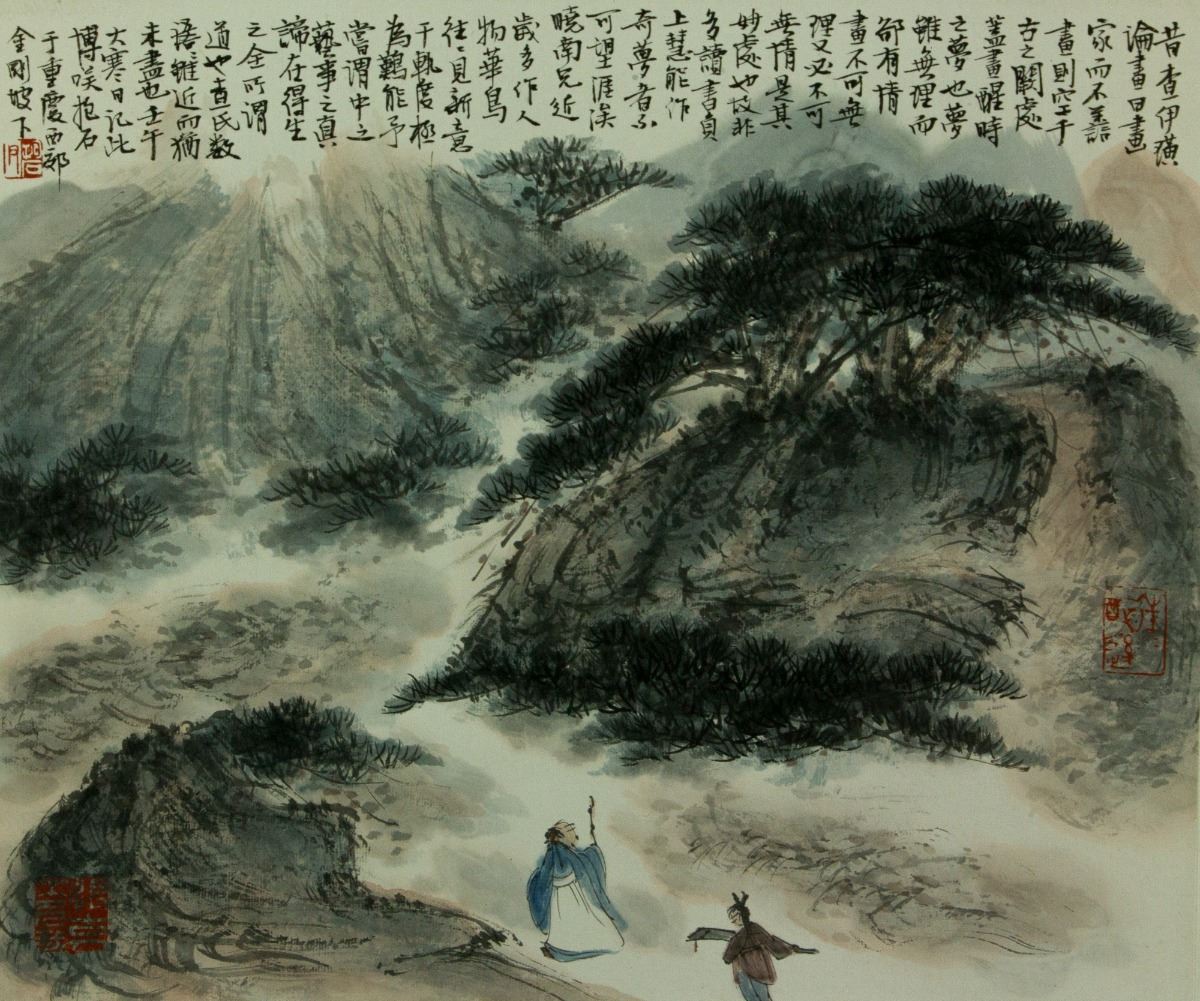 昔查伊璜
論畫曰畫
家而不善
畫則空千
古之闢處
蓋畫醒時
之夢也夢
雖無理而
卻有情
畫不可無
理又必不可
無情是其
妙處也故非
多讀書負
上慧能作
奇夢者不
可望涯涘
曉南兄近
歲多作人
物華鳥
往〻見新意
于軌度極
為鸛能予
嘗謂中之
藝事之真
諦在得生
之全所謂
道也查氏數
語雖近而猶
未盡也壬午
大寒日記此
博咲抱石
于重慶西郊
金剛坡下